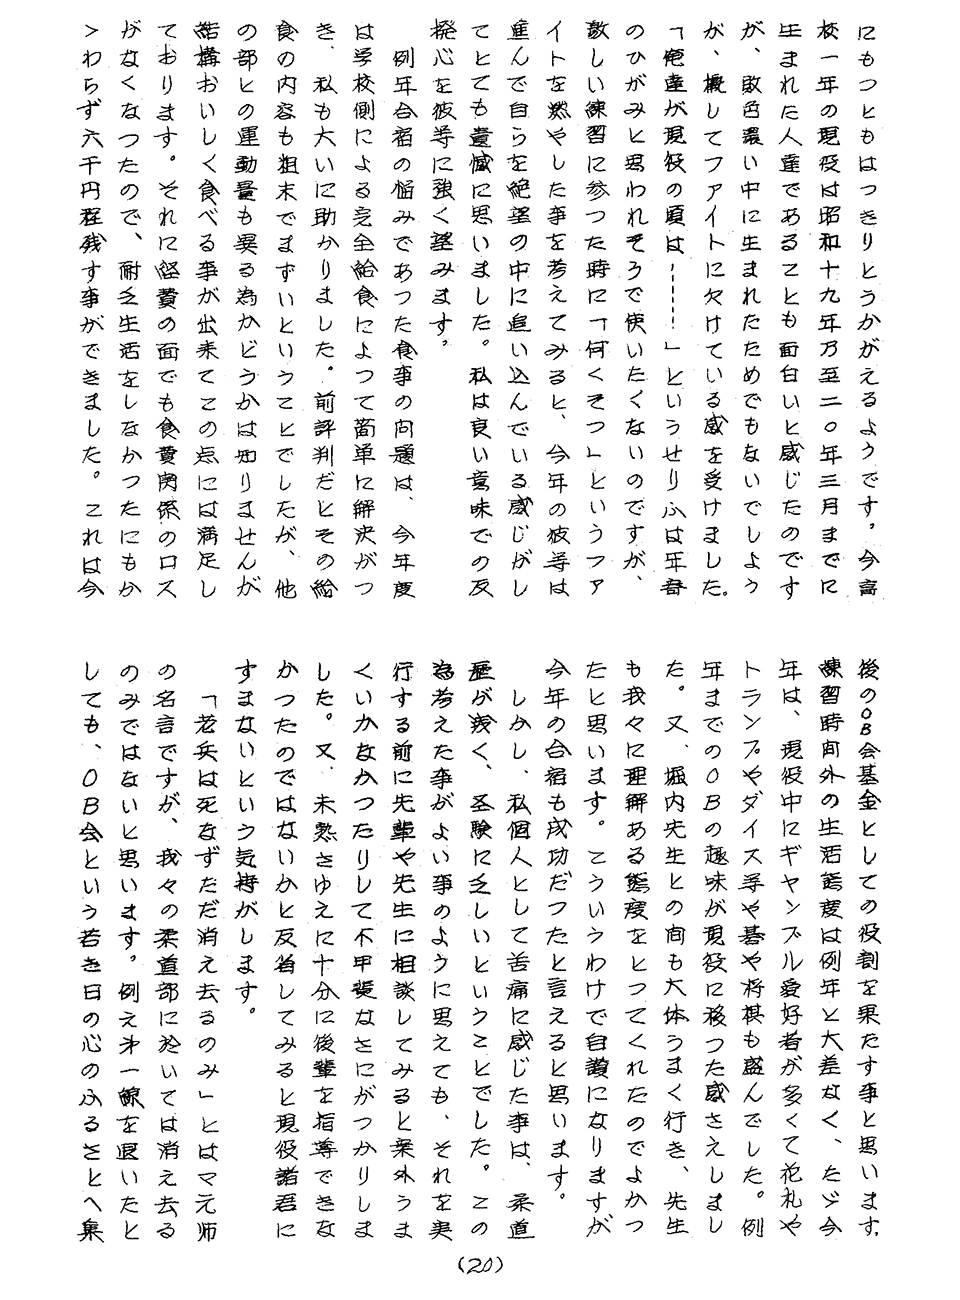 にもつともはつきりとうかがえるようです。今高
校一年の現役は昭和十九年乃至二〇年三月までに
生まれた人達であることも面白いと感じたのです
が、敗色濃い中に生まれたためでもないでしよう
が、概してファイトに欠けている感を受けました。
「俺達が現役の頃は-----!」というせりふは年寄
のひがみと思われそうで使いたくないのですが、
激しい練習に参つた時に「何くそつ」というファ
イトを燃やした事を考えてみると、今年の彼等は
進んで自らを絶望の中に追い込んでいる感じがし
てとても遺憾に思いました。私は良い意味での反
撥心を彼等に強く望みます。
例年合宿の悩みであつた食事の問題は、今年度
は学校側による完全給食によつて簡単に解決がつ
き、私も大いに助かりました。前評判だとその給
食の内容も粗末でまずいということでしたが、他
の部との運動量も異る為かどうかは知りませんが
結構おいしく食べる事が出来てこの点には満足し
ております。それに経費の面でも食費関係のロス
がなくなつたので、耐乏生活をしなかつたにもか
ゝわらず六千円程残す事ができました。これは今
後のOB会基金としての役割を果たす事と思います。
練習時間外の生活態度は例年と大差なく、たゞ今
年は、現役中にギャンブル愛好者が多くて花札や
トランプやダイス等や碁や将棋も盛んでした。例
年までのOBの趣味が現役に移つた感さえしまし
た。又、堀内先生との間も大体うまく行き、先生
も我々に理解ある態度をとつてくれたのでよかつ
たと思います。こういうわけで自讃になりますが
今年の合宿も成功だつたと言えると思います。
しかし、私個人として苦痛に感じた事は、柔道
歴が浅く、圣験に乏しいということでした。この
為考えた事がよい事のように思えても、それを実
行する前に先輩や先生に相談してみると案外うま
くいかなかつたりして不甲斐なさにがつかりしま
した。又、未熟さゆえに十分に後輩を指導できな
かつたのではないかと反省してみると現役諸君に
すまないという気持がします。
「老兵は死なずただ消え去るのみ」とはマ元帥
の名言ですが、我々の柔道部に於いては消え去る
のみではないと思います。例え才一線を退いたと
しても、OB会という若き日の心のふるさとへ集
(20)